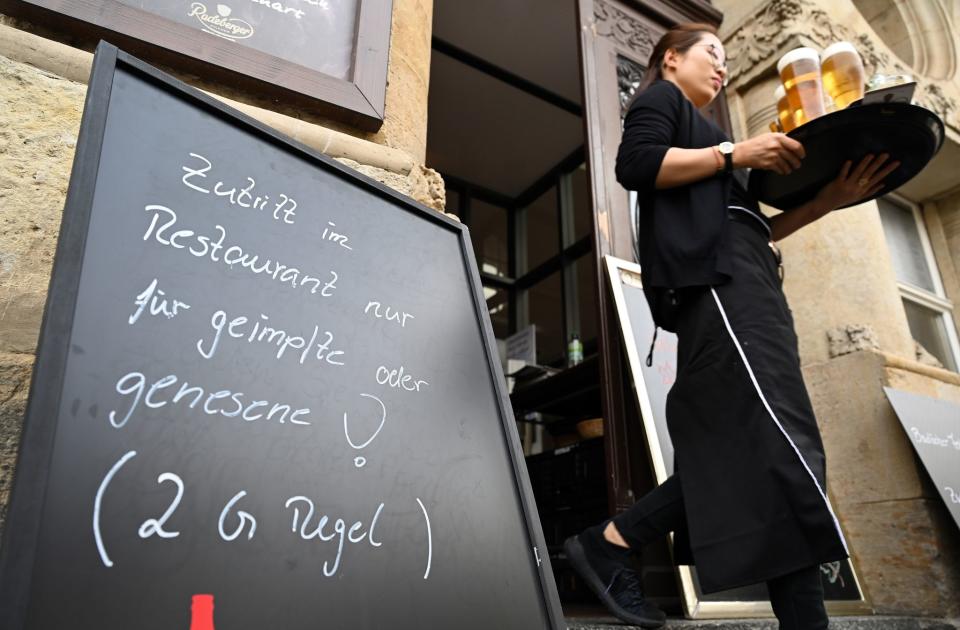 Radeberger
Zutritt im
Restaurant nur
für geimpfte oder
genesene !
(2 G Regel)